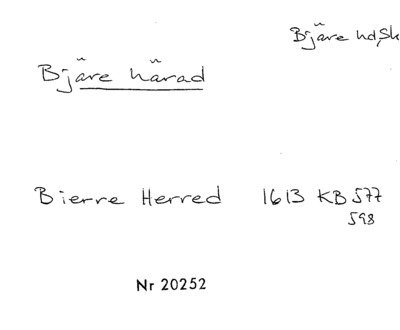 Bjäre hd, Sk
Bjäre härad
Bierre Herred 1613 KB 577
598
Nr 20252